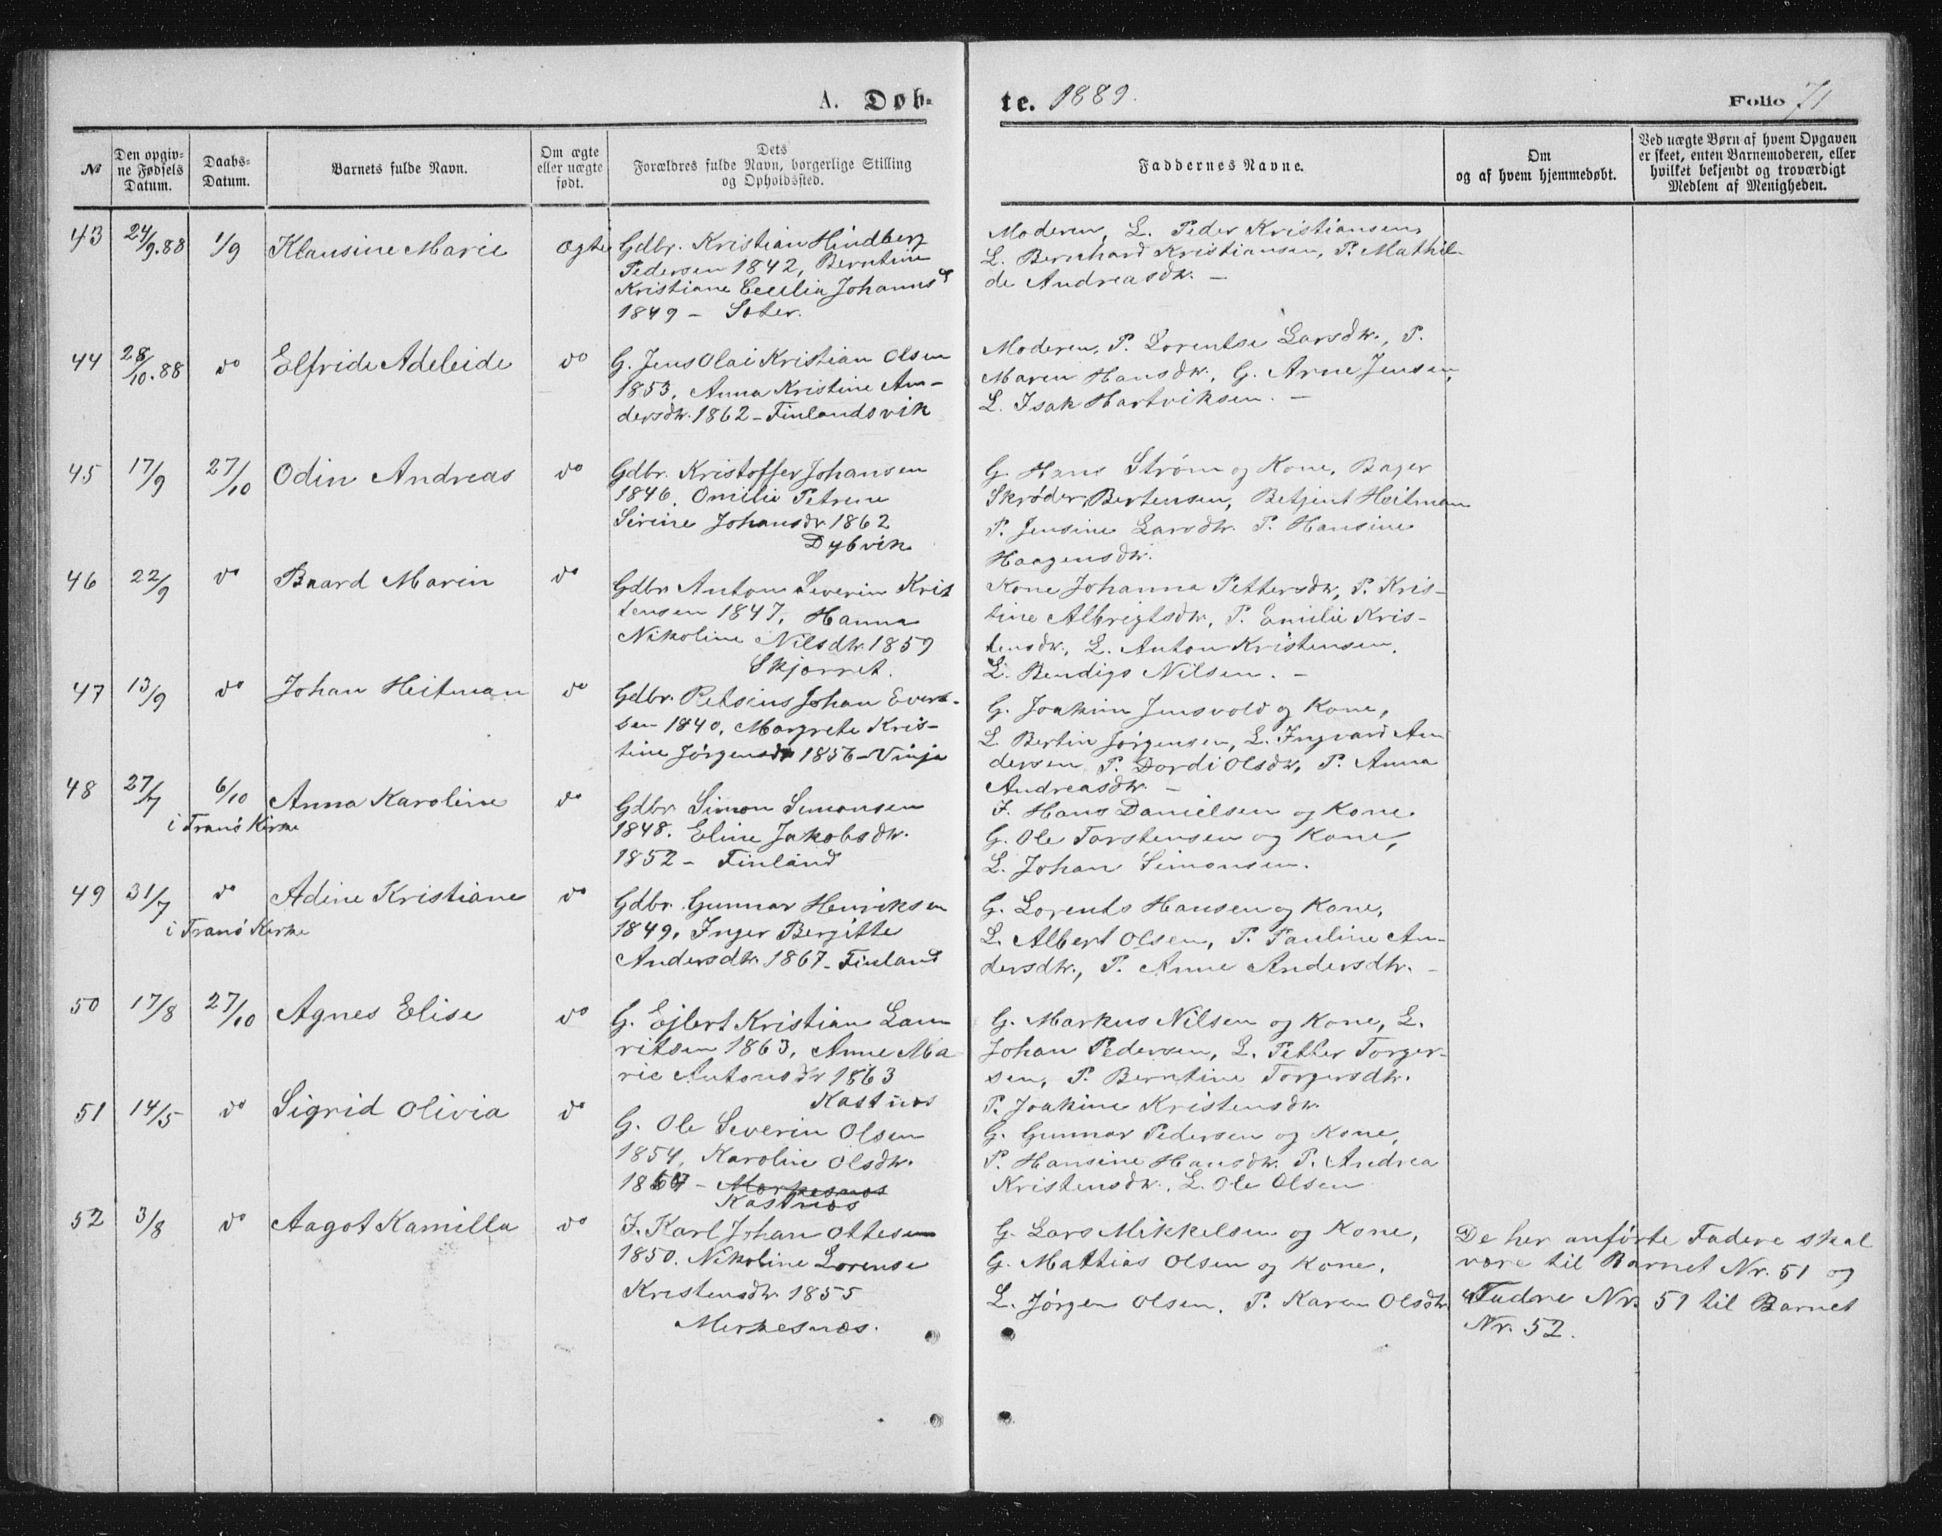 A. Døb-
te. 1889.
Folio 71
№
Den opgiv-
ne Fødsels
Datum.
Daabs-
Datum.
Barnets fulde Navn.
Om ægte
eller uægte
født.
Dets
Forældres fulde Navn, borgerlige Stilling
og Opholdssted.
Faddernes Navne.
Om
og af hvem hjemmedøbt.
Ved uægte Børn af hvem Opgaven
er skeet, enten Barnemoderen, eller
hvilket bekjendt og troværdigt
Medlem af Menigheden.
43 24/9.88 1/9 Klausine Marie Ægte
Gdbr. Kristian Hindberg
Pedersen 1842, Berntine
Kristiane Cecilia Johannsd
1849 - Soter.
Moderen, L. Peder Kristiansen,
L. Bernhard Kristiansen, P. Mathil-
de Andreasdtr. -
44 28/10.88 do Elfride Adeleide do
G. Jens Olai Kristian Olsen
1853, Anna Kristine An-
dersdtr. 1862 - Finlandsvik
Moderen, P. Lorentse Larsdtr., P.
Maren Hansdtr., G. Arne Jensen,
L. Isak Hartviksen. -
45 17/9 27/10 Odin Andreas do
Gdbr. Kristoffer Johansen
1846, Omilie Petrine
Sirine Johansdr. 1862
Dybvik
G. Hans Strøm og Kone, Bager
Skrøder Bertensen, Betjent Heitman
P. Jensine Larsdtr. P. Hansine
Haagensdtr.
46 22/9 do Baard Marin do
Gdbr Anton Severin Krist
tensen 1847, Hanna
Nikoline Nilsdtr. 1859
Skjørret.
Kone Johanna Pettersdtr, P. Kris-
tine Albrigtsdtr, P. Emilie Kris-
tensdtr, L. Anton Kristensen,
L. Bendigs Nilsen. -
47 13/9 do Johan Heitman do
Gdbr. Petsius Johan Evert-
sen 1840, Margrete Kris-
tine Jørgensdtr 1856 - Vinje
G. Joakim Jensvold og Kone,
L. Bertin Jørgensen, L. Ingvard An
dersen P. Dordi Olsdtr, P. Anna
Andreasdtr. -
48 27/7 6/10 Anna Karoline do
i Tranö Kirke
Gdbr. Simon Simonsen
1848. Eline Jakobsdtr.
1852 - Finland
I. Hans Danielsen og Kone.
G. Ole Torstensen og Kone,
L. Johan Simonsen.
49 31/7 do Adine Kristiane do
i Tranö Kirke
Gdbr. Gunnar Henriksen
1849, Inger Bergitte
Andersdtr. 1867 - Finland
G. Lorents Hansen og Kone,
L. Albert Olsen, P. Pauline An-
dersdtr., P. Anne Andersdtr. -
50 17/8 27/10 Agnes Elise do
G. Ejlert Kristian Lau
ritsen 1863, Anne Ma
rie Antonsdtr 1863
Kastnæs
G. Markus Nilsen og Kone, L.
Johan Pedersen, L. Petter Torger-
sen, P. Berntine Torgersdtr.
P. Joakine Kristensdtr
51 14/5 do Sigrid Olivia do
G. Ole Severin Olsen
1854, Karoline Olsdtr.
Merkesnæs
Kastnæs
G. Gunnar Pedersen og Kone,
P. Hansine Hansdtr. P. Andrea
Kristensdtr., L. Ole Olsen
52 3/8 do Aagot Kamilla do
I. Karl Johan Ottesen
1850. Nikoline Lorense
Kristensdtr. 1855
Merkesnæs.
G. Lars Mikkelsen og Kone,
G. Mattias Olsen og Kone.
L. Jørgen Olsen, P. Karen Olsdtr
De her anførte Fadere skal
være til Barnet Nr. 51 og
Fadre Nr. 51 til Barnet
Nr. 52.